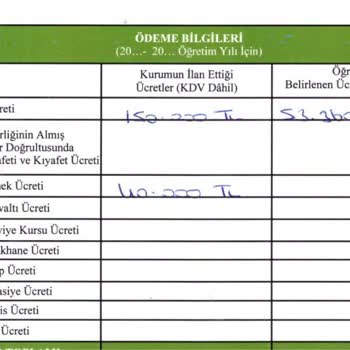 ÖDEME BİLGİLERİ
(20…- 20… Öğretim Yılı İçin)
Kurumun İlan Ettiği
Ücretler (KDV Dâhil)
Öğr
Belirlenen Üc
reti
150.000 TL
53.360
rliğinin Almış
r Doğrultusunda
afeti ve Kıyafet Ücreti
ek Ücreti
40.000 TL
valtı Ücreti
viye Kursu Ücreti
khane Ücreti
p Ücreti
asiye Ücreti
is Ücreti
Ücreti